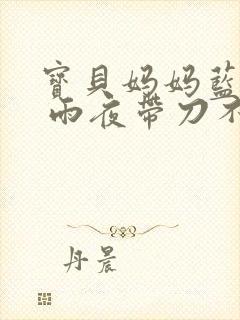 寶貝妈妈藍
雨夜帶刀不
丹晨